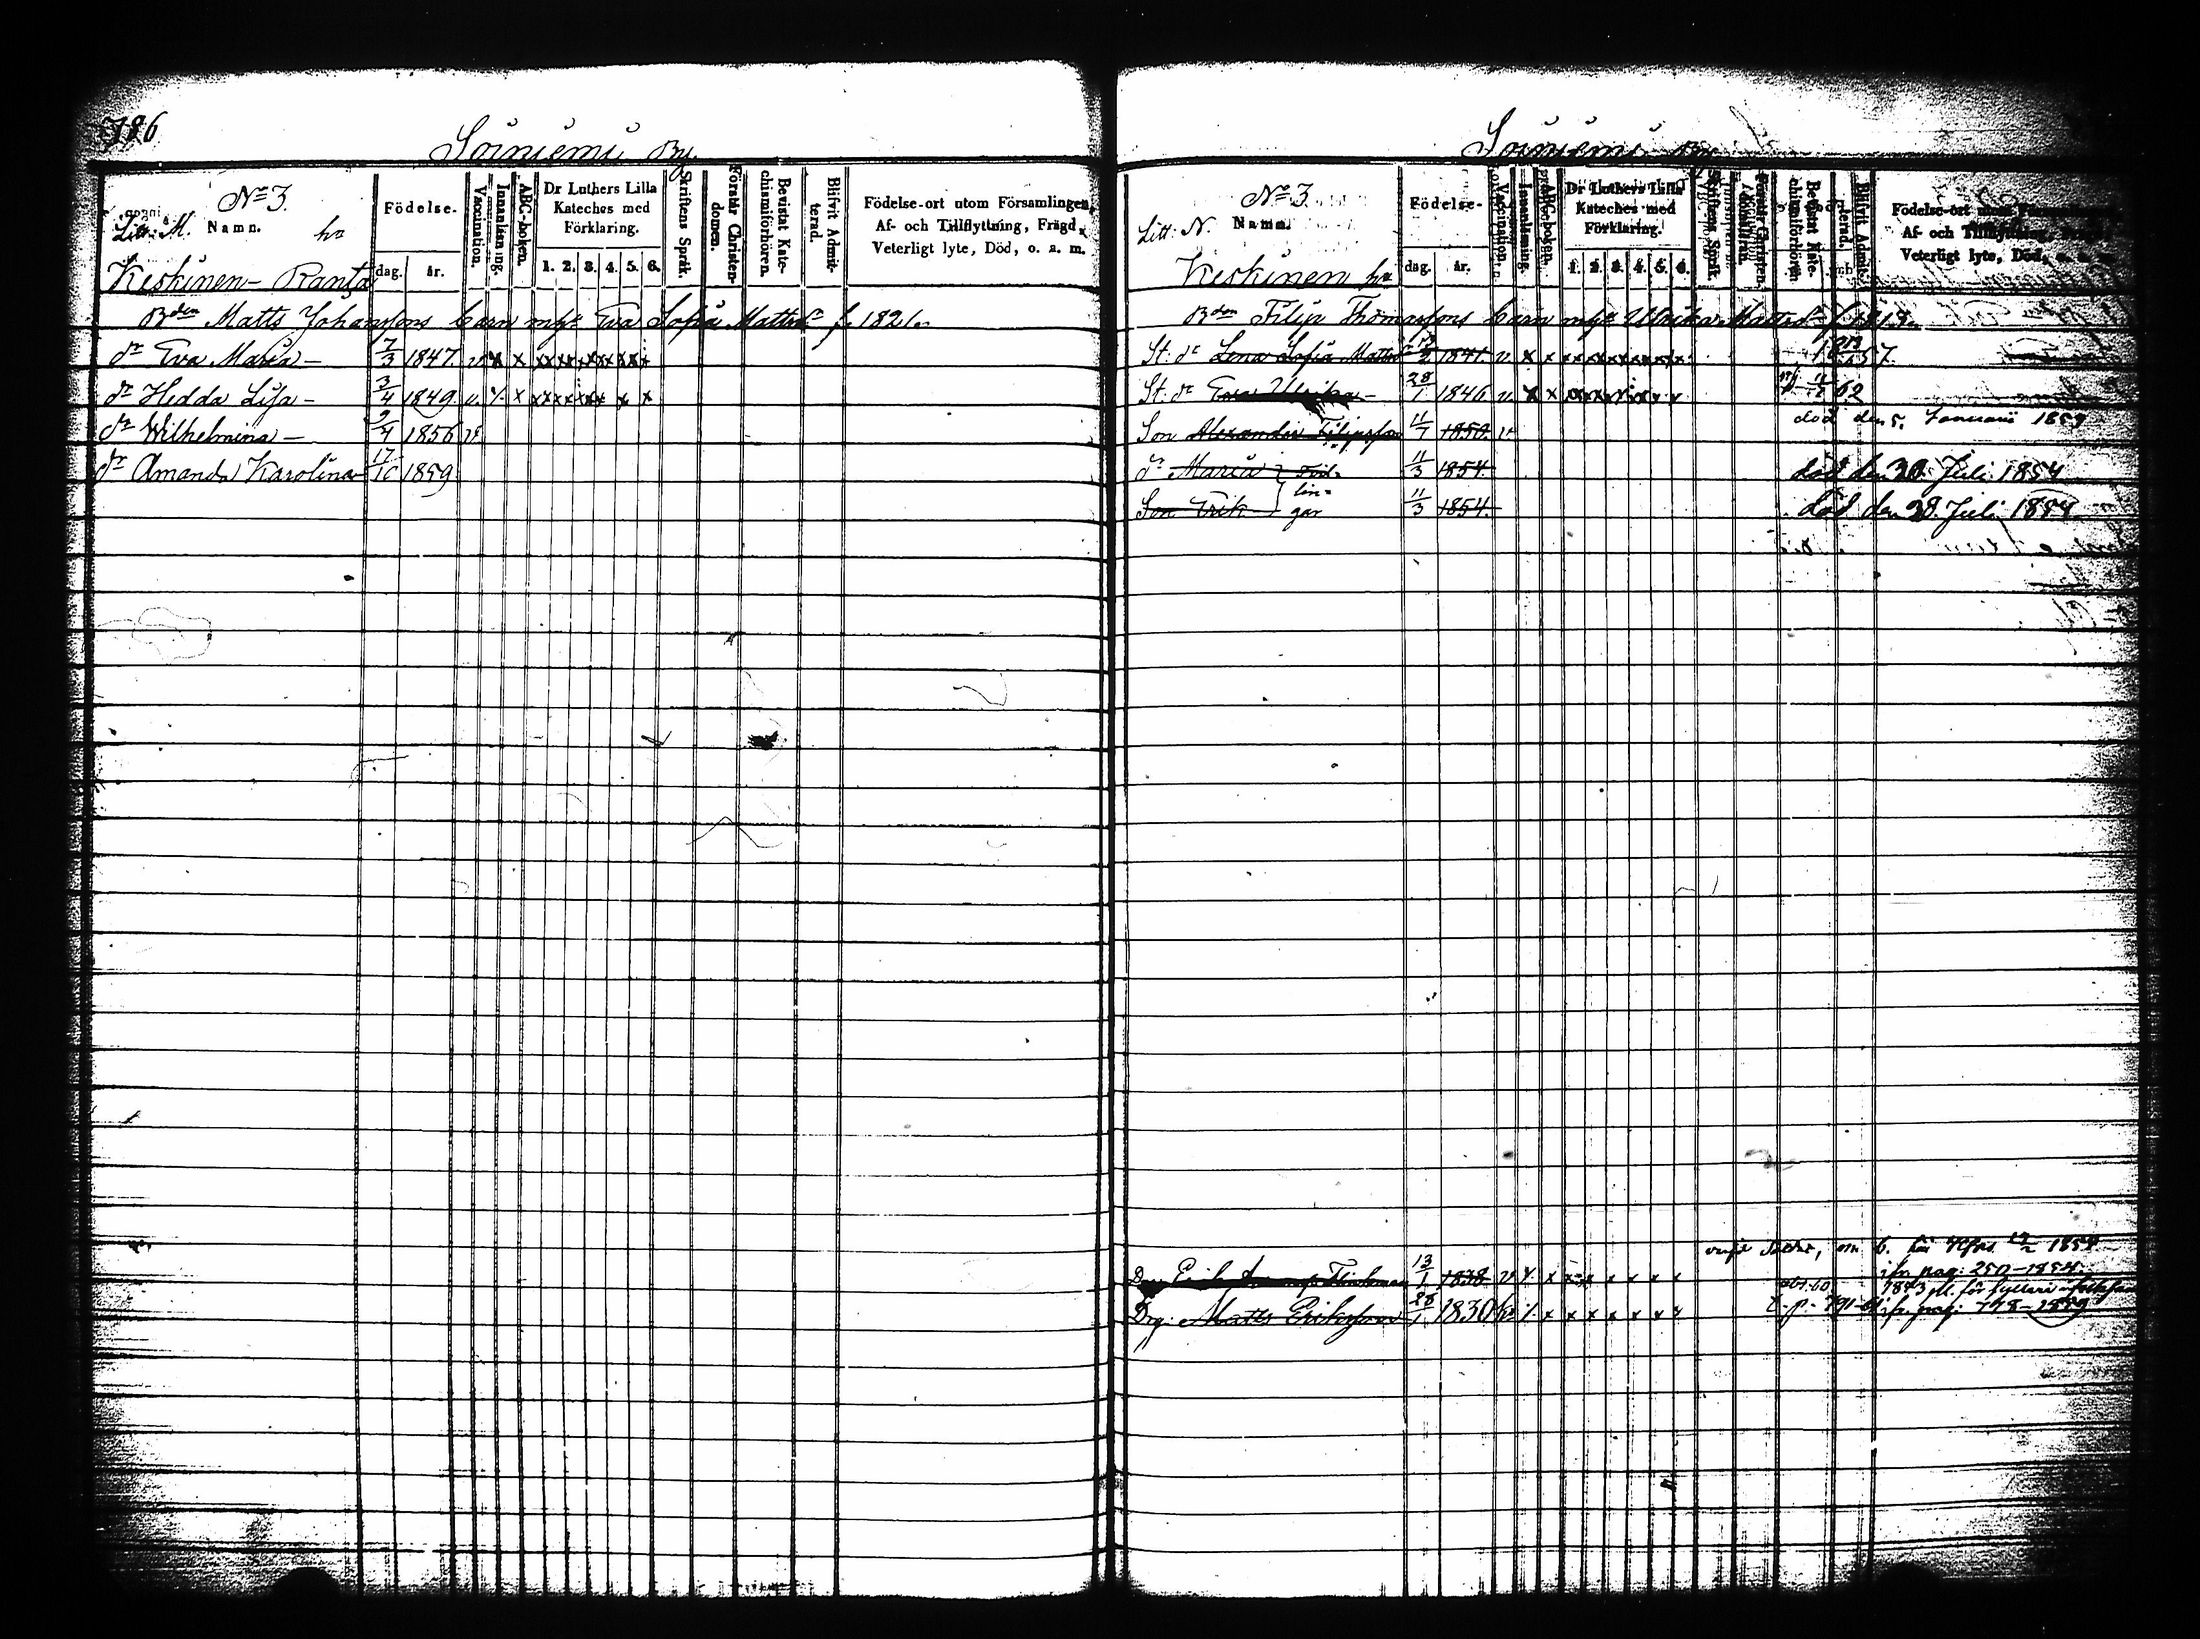 786
Soiniemi By.
No 3.
Litt: M. Namn. hn
Keskinen-Ranta
Födelse-
dag. år.
Vaccination.
Innanläsning.
ABC-boken.
Dr Luthers Lilla Kateches med Förklaring.
1. 2. 3. 4. 5. 6.
Skriftens Språk.
Förstår Christendomen.
Bevistat Katechismiförhören.
Blifvit Admitterad.
Födelse-ort utom Församlingen,
Af- och Tillflyttning, Frägd,
Veterligt lyte, Död, o. a. m.
Bden Matts Johanssons barn m/h Eva Sofia Mattsdr f. 1821.
dr Eva Maria - 7/3 1847. v x x x x x x x x x x x
dr Hedda Lisa - 3/4 1849. v. x x x x x x x x x
dr Wilhelmina - 9/4 1856 v
dr Amanda Karolina 17/10 1859
Soiniemi By
No 3.
Litt: N. Namn.
Keskinen hn
Födelse-
dag. år.
Vaccination.
Innanläsning.
ABC-boken.
Dr Luthers Lilla
Kateches med
Förklaring.
1. 2. 3. 4. 5. 6.
Skriftens Språk.
Förstår Christen-
Bevistat Kate-
chismiförhören
Blifvit Admit-
terad.
Födelse-ort utom
Af- och Tillflyttning,
Veterligt lyte, Död, o. a. m.
Bden Filip Thomassons barn m/h Ulrika Mattsdr f. 1819.
St. dr Lena Sofia Mattsdr 1841 v x x x x x x x x x 57.
St. dr Eva Ulrika - 28/1 1846 v x x x x x x x x 62
Son Alexander Filipsson 11/7 1850. v död den 5. Januari 1859
dr Maria } tvil- 11/3 1854. död den 30. Juli 1854
Son Erik } lin= gar 11/3 1854. död den 20. Juli 1854
1854
Erik 13/1 1838 v x x x x x x x ifr. pag: 250-1854.
Drg: Matts Eriksson 28/1 1830 x x x x x x x ifr. pag: 778-1859